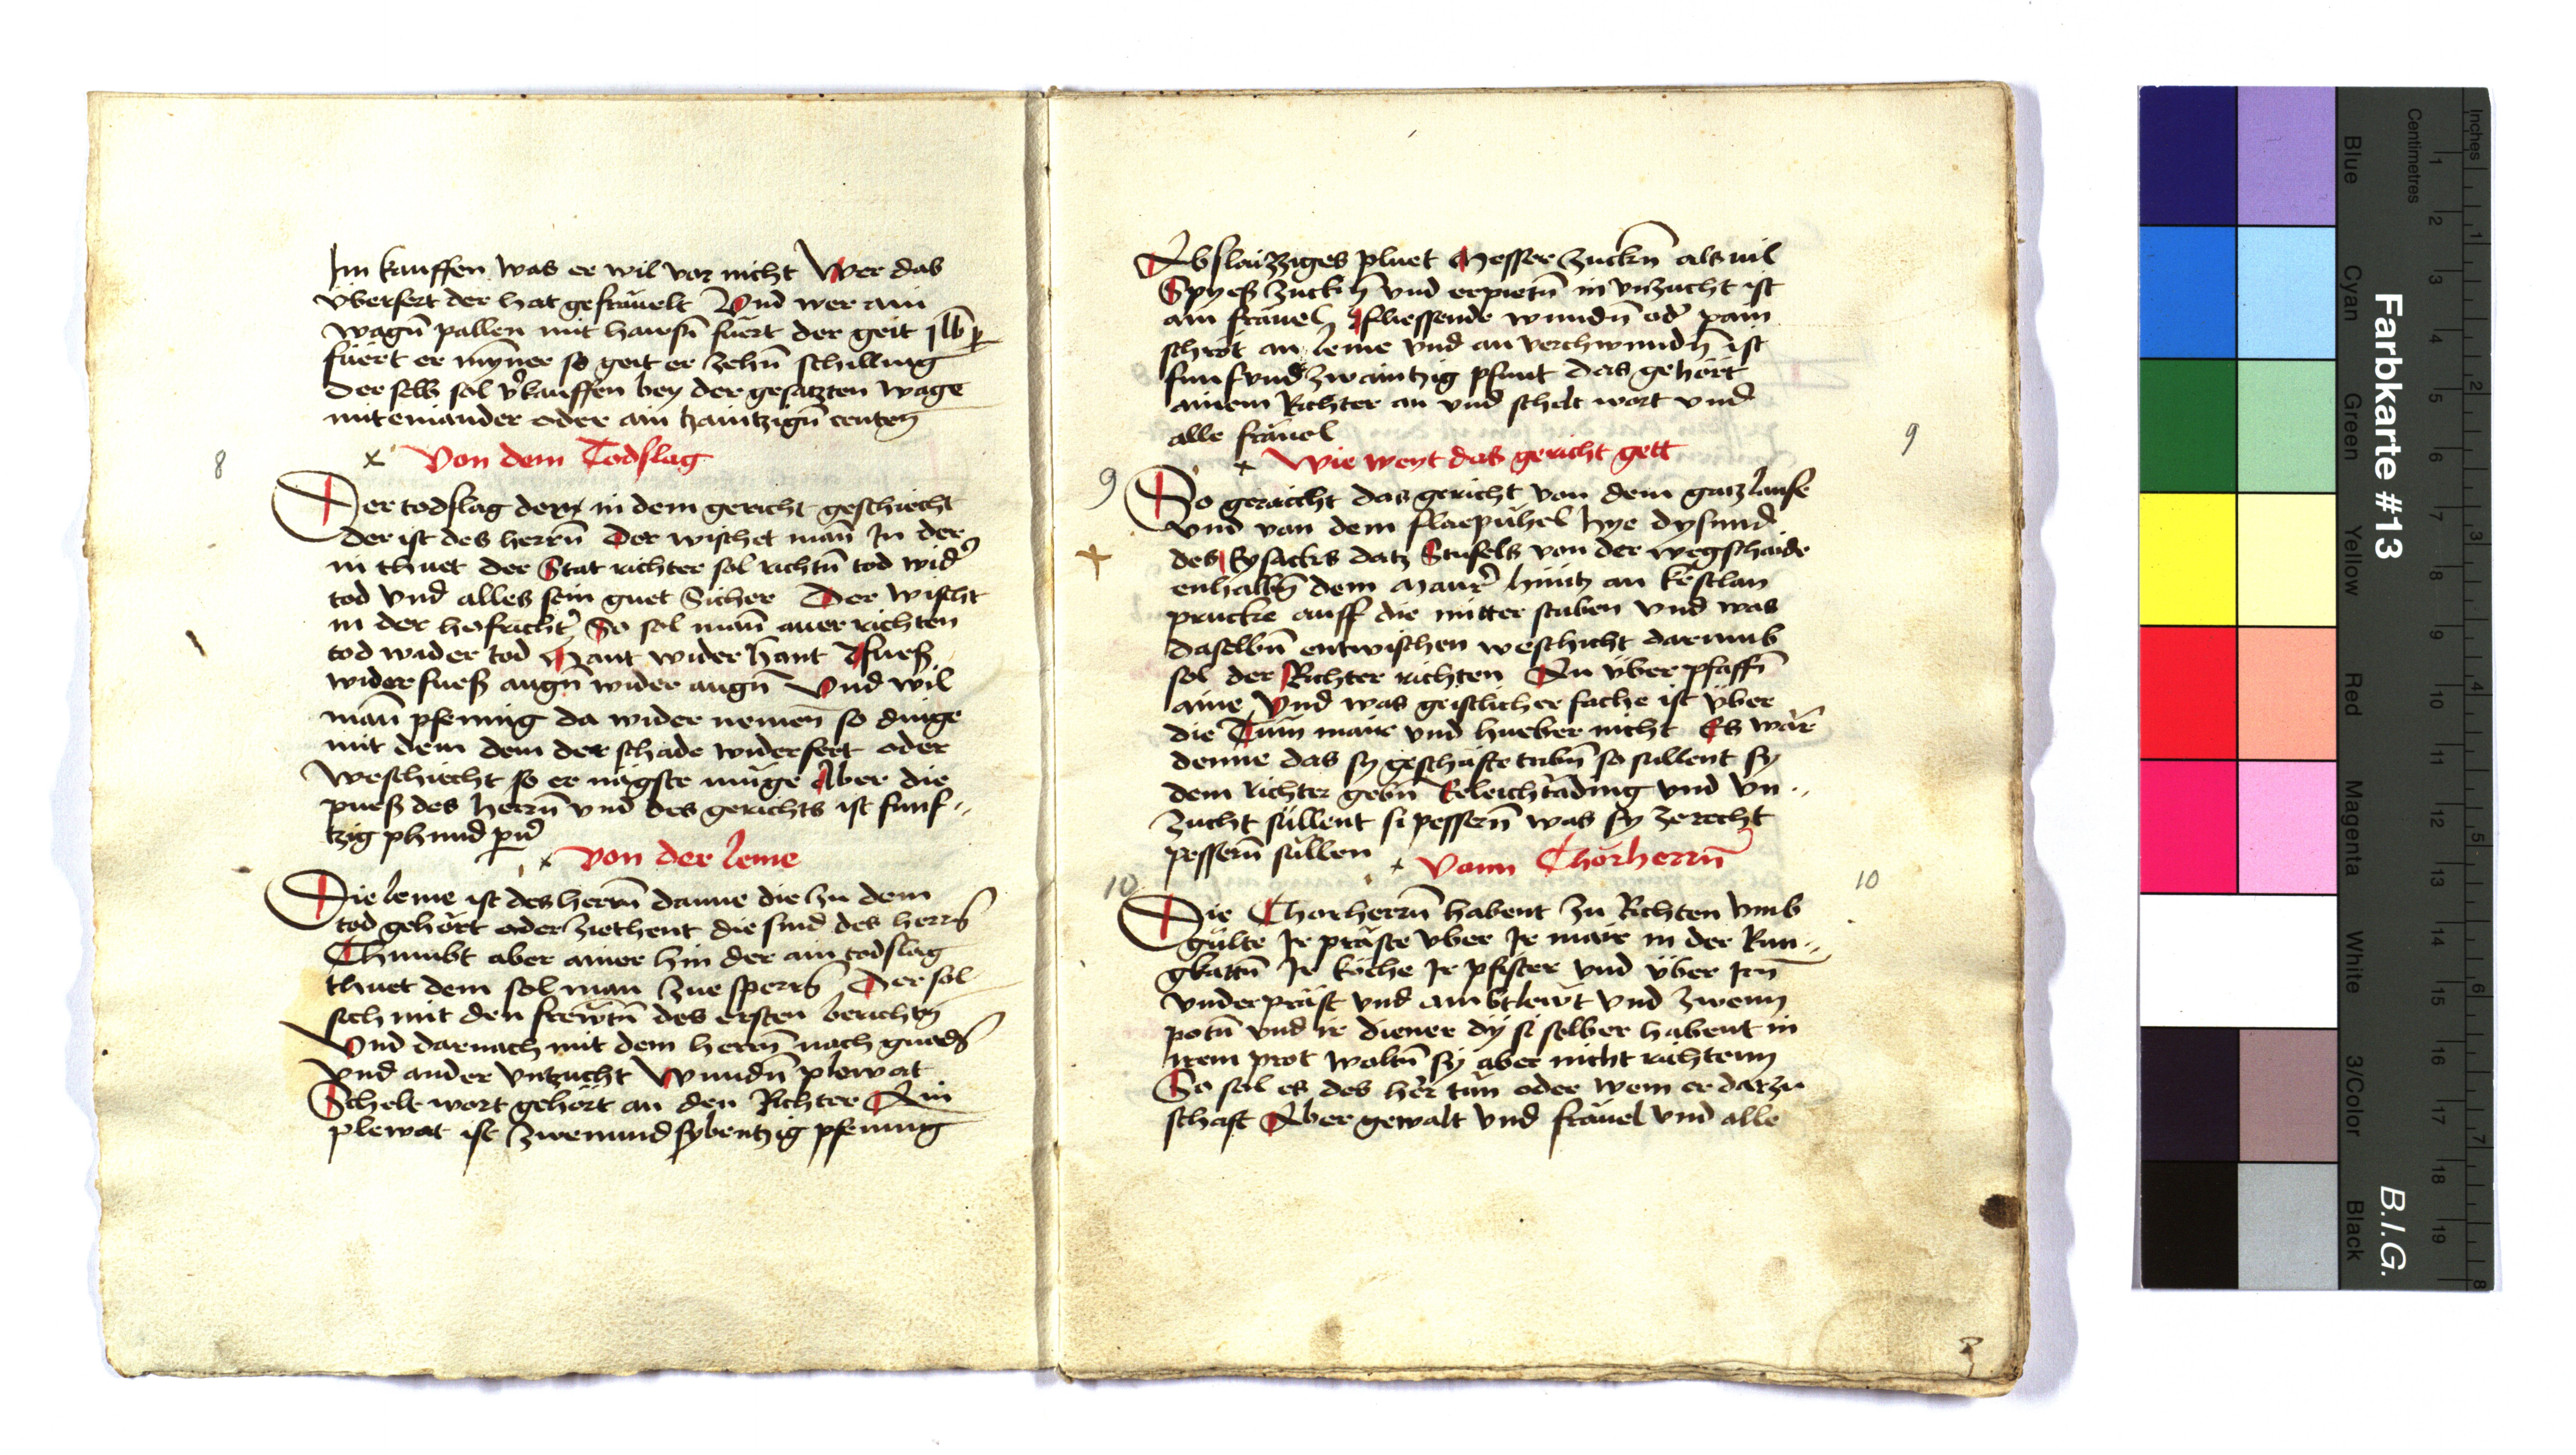 Im kauffen was er wil vor nicht Wer das
vberfert der hat gefräuelt Vnd wer ain
wagn̄ pallen mit hausn̄ fürt der geit
füert er mynner so geit er zehn̄ schilling
Der selb sol v̉kauffen bey der gesatzten wage
miteinander oder ain tzaintzign̄ centen
8
x Von dem Todslag
Der todslag der in dem gericht geschiecht
der ist des herrn̄ Der wischet man̄ In der
in thuet der Stat richter sol richtn̄ tod wid̉
tod vnd alles sein guet Sicher Der wischt
in der hofricht̉ So sol man̄ auer richten
tod wider tod Hant wider hant Fuesz
wider fuesz augn̄ wider augn̄ Vnd wil
man̄ pfening da wider nemen so dinge
mit dem dem der schade widerfert oder
weschiecht so er nägste müge Aber die
puesz des herrn̄ vnd des gerichts ist funf-
tzig phund
x Von der leme
Die leme ist des herrn̄ danne die zu dem
tod gehört oder ziehent die sind des herrn̄
Chumbt aber ainer hin der ain todslag
thuet dem sol man zue sperrn̄ Der sol
sich mit den frewtn̄ des ersten berichtn̄
Vnd darnach mit dem herrn̄ nach gnadn̄
vnd ander vntzucht Wundn̄ plewat
Schelt wort gehört an den Richter Ain
plewat ist zwenundsybentzig pfening
Abslaizziges pluet Messer zuckn̄ als vil
Spyesz zuckn̄ vnd erpietn̄ in vnzucht ist
ain fräuel Fliessende wundn̄ od̉ pain
schrot an leme vnd an verchwundn̄ ist
funfvndzwaintzig pfunt das gehört
ainem Richter an vnd schelt wort vnd
alle fräuel
9
x Wie weyt das gericht gett
9
Do geraicht das gericht von dem gatzlaufe
vnd von dem flaepühel hye dysund
des Eysacks datz Stufels von der wegschaide
enhalbn̄ dem Maur̉ hüntz an kestlan
prucke auff die mitter stuben vnd was
daselbn̄ entwischen weschicht darumb
sol der Richter richten An über pfaffn̄
aine Vnd was geistlicher sache ist über
die Tum mair vnd hueber nicht Es wär
denne das sy geschäfte tribn̄ so sullent sy
dem richter gebn̄ Eeleichtäding vnd vn-
zucht süllent si pessern̄ was sy zerecht
pessern̄ süllen x Vonn Chorherrn̄
10
10
Die Chorherrn̄ habent zu Richten vmb
gülte Ir präste vber Ir mair in der Run-
gkattn̄ Ir köche Ir pfister vnd über Irn̄
vnderpräst vnd ambtlewt vnd zwenn
potn̄ vnd ir diener dy si selber habent in
irem prot woltn̄ sy aber nicht richtenn
So sol es des her tun oder wem er darzu
schaft Aber gewalt vnd fräuel vnd alle
Farbkarte #13
B.I.G.
Inches
Centimetres
1 2 3 4 5 6 7 8 9 10 11 12 13 14 15 16 17 18 19
1 2 3 4 5 6 7 8
Blue
Cyan
Green
Yellow
Red
Magenta
White
3/Color
Black